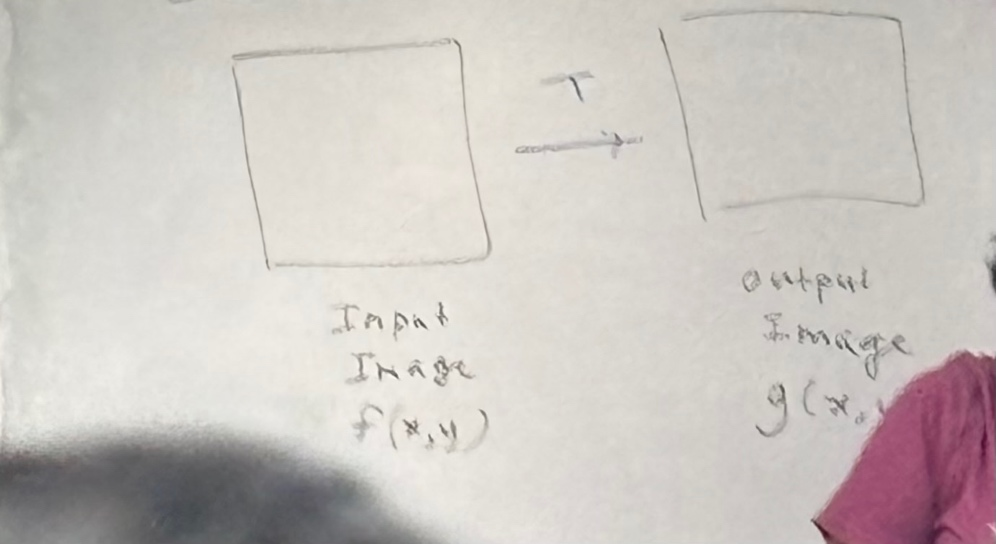 T
Input
Image
f(x,y)
Output
Image
g(x,